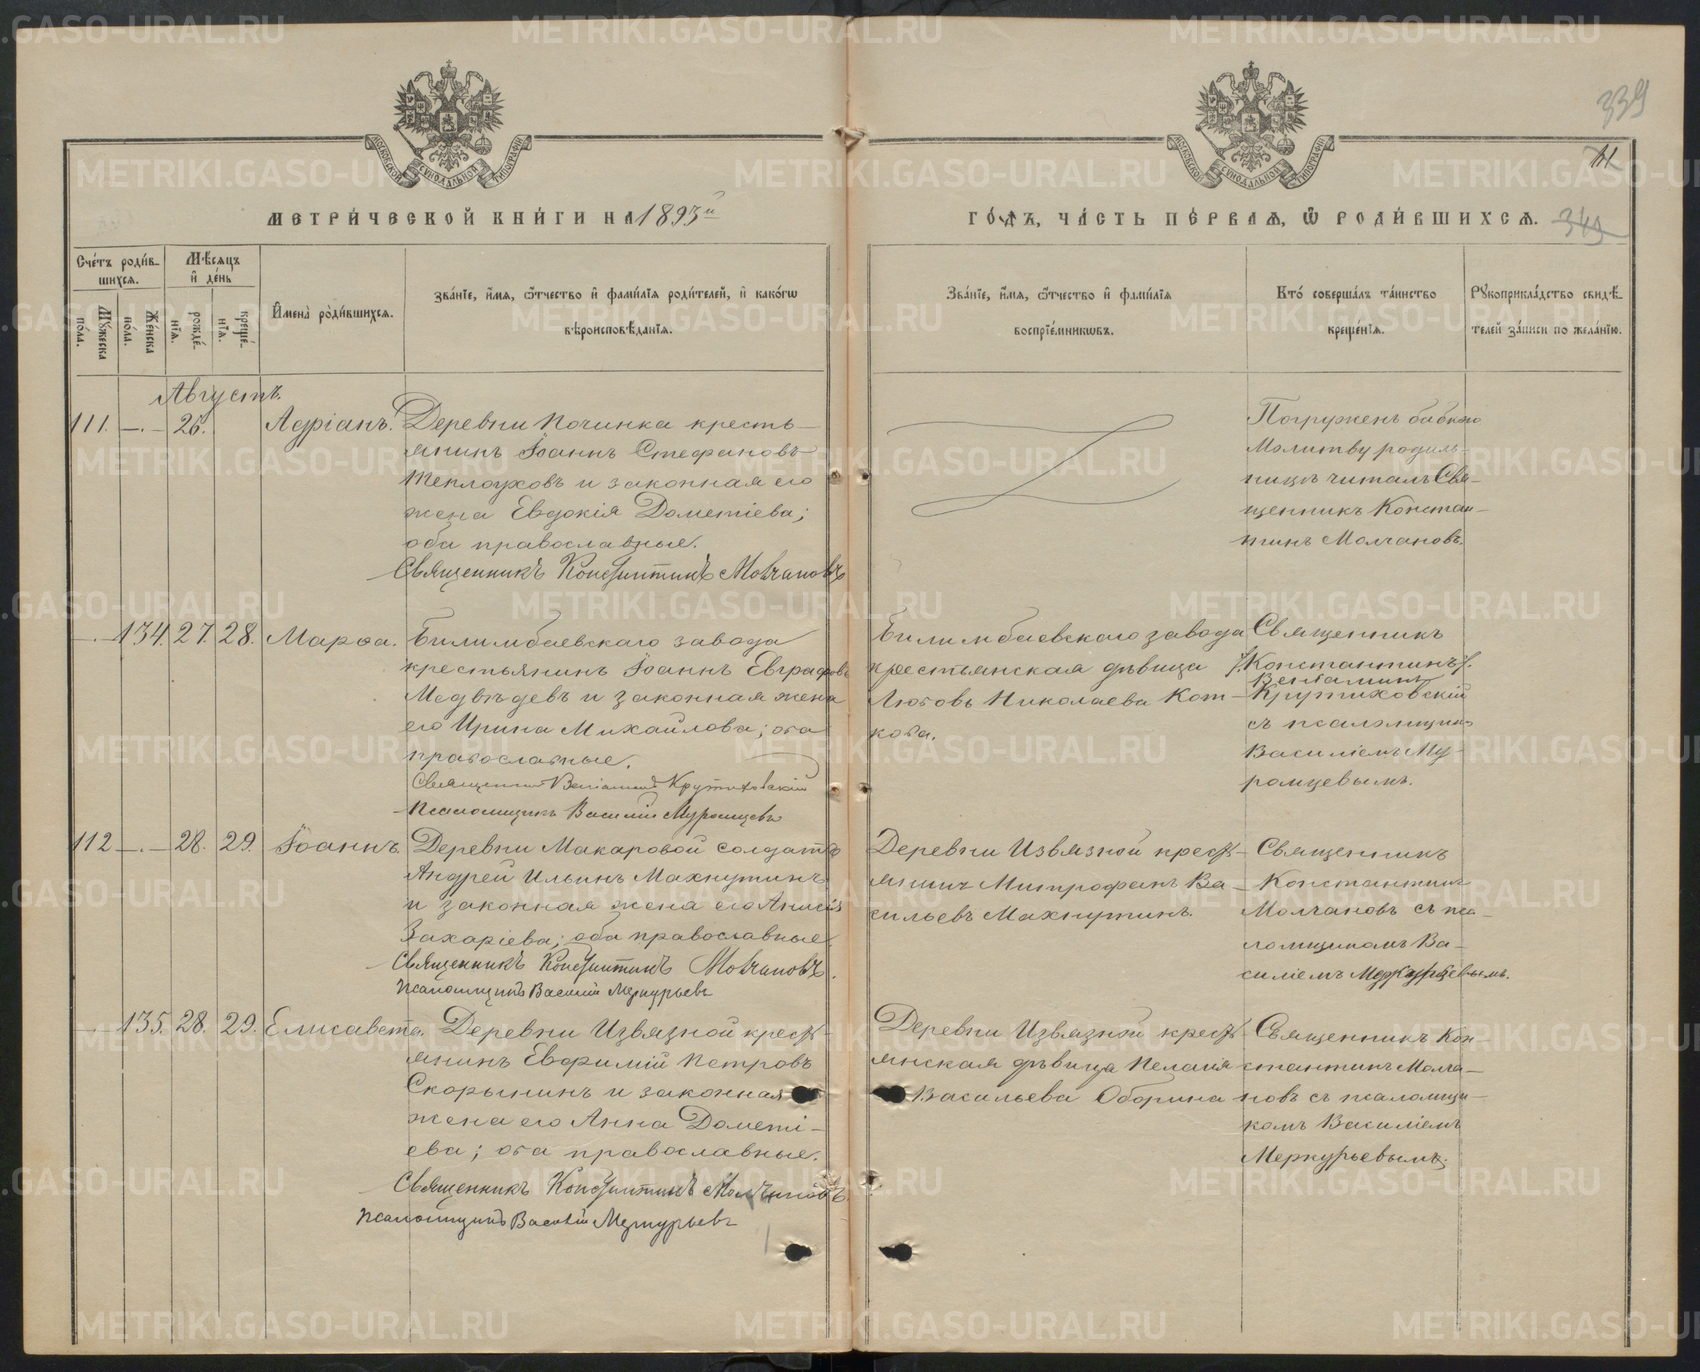 339
41
349
МЕТРИ́ЧЕСКОЙ КНИ́ГИ НА 1893й
ГО́ДЪ, ЧА́СТЬ ПЕ́РВАѦ, Ѿ РОДИ́ВШИХСѦ.
Сче́тъ роди́вшихсѧ.
Мꙋ́жеска по́ла.
Же́нска по́ла.
Мѣ́сѧцъ и҆ де́нь
рожде́нїѧ.
креще́нїѧ.
И҆мена̀ роди́вшихсѧ.
Зва́нїе, и҆́мѧ, ѻ҆́тчество и҆ фами́лїѧ роди́телей, и҆ како́гѡ
вѣроисповѣ́данїѧ.
Зва́нїе, и҆́мѧ, ѻ҆́тчество и҆ фами́лїѧ
воспрїе́мникѡвъ.
Кто̀ соверша́лъ та́инство
креще́нїѧ.
Рꙋкоприкла́дство свидѣ́-
телей за́писи по жела́нїю.
Августъ.
111. —.— 26. Адріанъ.
Деревни Починка кресть-
янинъ Іоаннъ Стефановъ
Теплоуховъ и законная его
жена Евдокія Дометіева;
оба православные.
Священникъ Константинъ Молчановъ
Погруженъ бабкою
Молитву родиль-
ницѣ читалъ Свя-
щенникъ Констан-
тинъ Молчановъ.
—. 134. 27. 28. Марѳа.
Билимбаевскаго завода
крестьянинъ Іоаннъ Евграфовъ
Медвѣдевъ и законная жена
его Ирина Михайлова; оба
православные.
Священникъ Веніаминъ Крутиховскій
Псаломщикъ Василій Муромцевъ
Билимбаевскаго завода
крестьянская дѣвица
Любовь Николаева Кот-
кова.
Священникъ
Константинъ
Веніаминъ
Крутиховскій
съ псаломщик.
Василіемъ Му-
ромцевымъ.
112 —.— 28. 29. Іоаннъ.
Деревни Макаровой солдатъ
Андрей Ильинъ Махнутинъ
и законная жена его Анисія
Захаріева; оба православные
Священникъ Константинъ Молчановъ.
Псаломщикъ Василій Меркурьевъ
Деревни Извязной кресть-
янинъ Митрофанъ Ва-
сильевъ Махнутинъ.
Священникъ
Константинъ
Молчановъ съ пса-
ломщикомъ Ва-
силіемъ Меркурьевымъ.
— 135. 28. 29. Елисавета.
Деревни Извязной кресть-
янинъ Евфимій Петровъ
Скорынинъ и законная
жена его Анна Дометі-
ева; оба православные.
Священникъ Константинъ Молчановъ
Псаломщикъ Василій Меркурьевъ
Деревни Извязной кресть-
янская дѣвица Пелагія
Васильева Оборина
Священникъ Кон-
стантинъ Молча-
новъ съ псаломщи-
комъ Василіемъ
Меркурьевымъ.
METRIKI.GASO-URAL.RU